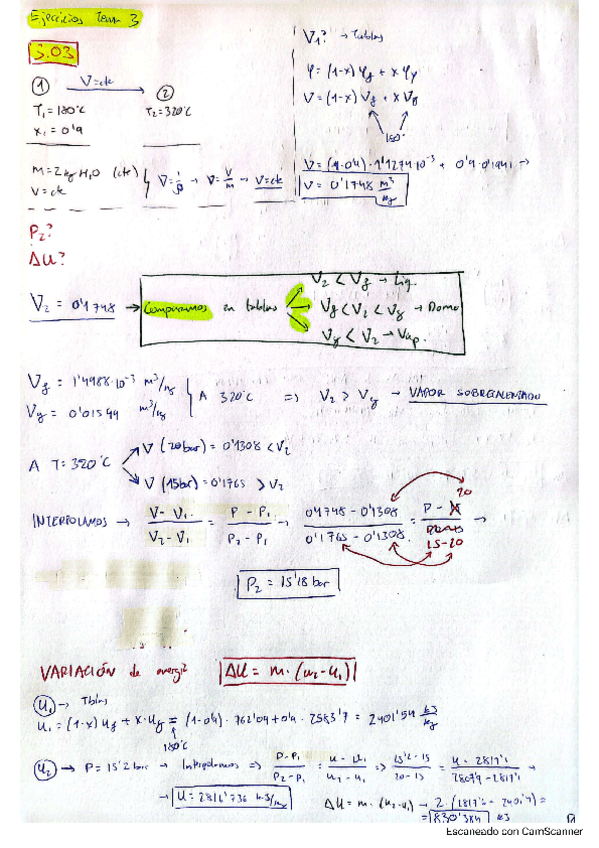 Ejercicios tema 3
3.03
① V=cte ②
T₁=180°C T₂=320°C
x₁=0'9
m=2kg H₂O (cte)
V=cte
V=1/ρ → V=V/m → V=cte
V₁? → Tablas
φ=(1-x)φf + xφg
V=(1-x)Vf + xVg
180°
V=(1-0'9)·1'1274·10⁻³ + 0'9·0'1941 →
V=0'1748 m³/kg
P₂?
ΔU?
V₂ = 0'1748 → Comparamos en tablas
V₂ < Vf → Líq.
Vf < V₂ < Vg → Domo
Vg < V₂ → Vap.
Vf = 1'4988·10⁻³ m³/kg
Vg = 0'01544 m³/kg
A 320°C ⇒ V₂ > Vg → VAPOR SOBRECALENTADO
A T=320°C
V (20bar) = 0'1308 < V₂
V (15bar) = 0'1765 > V₂
INTERPOLAMOS → V-V₁/V₂-V₁ = P-P₁/P₂-P₁ → 0'1748-0'1308/0'1765-0'1308 = P-20/15-20 →
P₂ = 15'18 bar
VARIACIÓN de energía ΔU = m·(u₂-u₁)
u₁ → Tblas
u₁=(1-x)uf + x·ug = (1-0'9)·762'09+0'9·2583'7 = 2401'54 kJ/kg
180°C
u₂ → P=15'2 bar → Interpolamos ⇒ P-P₁/P₂-P₁ = u-u₁/u₂-u₁ ⇒ 15'2-15/20-15 = u-2817'1/2807'9-2817'1 →
→ u=2816'736 kJ/kg ΔU=m·(u₂-u₁) → 2·(2817'1-2401'9)=
=830'384 kJ
Escaneado con CamScanner